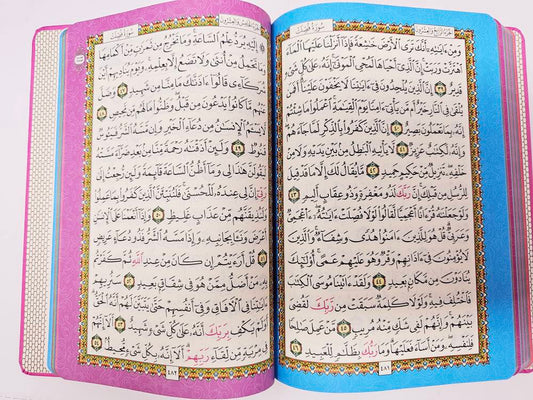 سُورَةُ فُصِّلَتْ
وَمِنْ ءَايَٰتِهِۦٓ أَنَّكَ تَرَى ٱلْأَرْضَ خَٰشِعَةً فَإِذَآ أَنزَلْنَا عَلَيْهَا ٱلْمَآءَ
ٱهْتَزَّتْ وَرَبَتْ إِنَّ ٱلَّذِىٓ أَحْيَاهَا لَمُحْىِ ٱلْمَوْتَىٰٓ إِنَّهُۥ عَلَىٰ كُلِّ شَىْءٍ
قَدِيرٌ ٣٩ إِنَّ ٱلَّذِينَ يُلْحِدُونَ فِىٓ ءَايَٰتِنَا لَا يَخْفَوْنَ عَلَيْنَآ أَفَمَن
يُلْقَىٰ فِى ٱلنَّارِ خَيْرٌ أَم مَّن يَأْتِىٓ ءَامِنًا يَوْمَ ٱلْقِيَٰمَةِ ٱعْمَلُوا۟ مَا شِئْتُمْ
إِنَّهُۥ بِمَا تَعْمَلُونَ بَصِيرٌ ٤٠ إِنَّ ٱلَّذِينَ كَفَرُوا۟ بِٱلذِّكْرِ لَمَّا جَآءَهُمْ
وَإِنَّهُۥ لَكِتَٰبٌ عَزِيزٌ ٤١ لَّا يَأْتِيهِ ٱلْبَٰطِلُ مِنۢ بَيْنِ يَدَيْهِ وَلَا مِنْ
خَلْفِهِۦ تَنزِيلٌ مِّنْ حَكِيمٍ حَمِيدٍ ٤٢ مَّا يُقَالُ لَكَ إِلَّا مَا قَدْ قِيلَ
لِلرُّسُلِ مِن قَبْلِكَ إِنَّ رَبَّكَ لَذُو مَغْفِرَةٍ وَذُو عِقَابٍ أَلِيمٍ ٤٣
وَلَوْ جَعَلْنَٰهُ قُرْءَانًا أَعْجَمِيًّا لَّقَالُوا۟ لَوْلَا فُصِّلَتْ ءَايَٰتُهُۥٓ ءَا۬عْجَمِىٌّ
وَعَرَبِىٌّ قُلْ هُوَ لِلَّذِينَ ءَامَنُوا۟ هُدًى وَشِفَآءٌ وَٱلَّذِينَ
لَا يُؤْمِنُونَ فِىٓ ءَاذَانِهِمْ وَقْرٌ وَهُوَ عَلَيْهِمْ عَمًى أُو۟لَٰٓئِكَ
يُنَادَوْنَ مِن مَّكَانٍۭ بَعِيدٍ ٤٤ وَلَقَدْ ءَاتَيْنَا مُوسَى ٱلْكِتَٰبَ
فَٱخْتُلِفَ فِيهِ وَلَوْلَا كَلِمَةٌ سَبَقَتْ مِن رَّبِّكَ لَقُضِىَ
بَيْنَهُمْ وَإِنَّهُمْ لَفِى شَكٍّ مِّنْهُ مُرِيبٍ ٤٥ مَّنْ عَمِلَ صَٰلِحًا
فَلِنَفْسِهِۦ وَمَنْ أَسَآءَ فَعَلَيْهَا وَمَا رَبُّكَ بِظَلَّٰمٍ لِّلْعَبِيدِ ٤٦
٤٨١
سُورَةُ فُصِّلَتْ
إِلَيْهِ يُرَدُّ عِلْمُ ٱلسَّاعَةِ وَمَا تَخْرُجُ مِن ثَمَرَٰتٍ مِّنْ أَكْمَامِهَا
وَمَا تَحْمِلُ مِنْ أُنثَىٰ وَلَا تَضَعُ إِلَّا بِعِلْمِهِۦ وَيَوْمَ يُنَادِيهِمْ أَيْنَ
شُرَكَآءِى قَالُوٓا۟ ءَاذَنَّٰكَ مَا مِنَّا مِن شَهِيدٍ ٤٧ وَضَلَّ
عَنْهُم مَّا كَانُوا۟ يَدْعُونَ مِن قَبْلُ وَظَنُّوا۟ مَا لَهُم مِّن مَّحِيصٍ ٤٨
لَّا يَسْـَٔمُ ٱلْإِنسَٰنُ مِن دُعَآءِ ٱلْخَيْرِ وَإِن مَّسَّهُ ٱلشَّرُّ فَيَـُٔوسٌ
قَنُوطٌ ٤٩ وَلَئِنْ أَذَقْنَٰهُ رَحْمَةً مِّنَّا مِنۢ بَعْدِ ضَرَّآءَ مَسَّتْهُ
لَيَقُولَنَّ هَٰذَا لِى وَمَآ أَظُنُّ ٱلسَّاعَةَ قَآئِمَةً وَلَئِن رُّجِعْتُ إِلَىٰ
رَبِّىٓ إِنَّ لِى عِندَهُۥ لَلْحُسْنَىٰ فَلَنُنَبِّئَنَّ ٱلَّذِينَ كَفَرُوا۟ بِمَا عَمِلُوا۟
وَلَنُذِيقَنَّهُم مِّنْ عَذَابٍ غَلِيظٍ ٥٠ وَإِذَآ أَنْعَمْنَا عَلَى ٱلْإِنسَٰنِ
أَعْرَضَ وَنَـَٔا بِجَانِبِهِۦ وَإِذَا مَسَّهُ ٱلشَّرُّ فَذُو دُعَآءٍ عَرِيضٍ
٥١ قُلْ أَرَءَيْتُمْ إِن كَانَ مِنْ عِندِ ٱللَّهِ ثُمَّ كَفَرْتُم بِهِۦ
مَنْ أَضَلُّ مِمَّنْ هُوَ فِى شِقَاقٍۭ بَعِيدٍ ٥٢ سَنُرِيهِمْ
ءَايَٰتِنَا فِى ٱلْءَافَاقِ وَفِىٓ أَنفُسِهِمْ حَتَّىٰ يَتَبَيَّنَ لَهُمْ أَنَّهُ ٱلْحَقُّ
أَوَلَمْ يَكْفِ بِرَبِّكَ أَنَّهُۥ عَلَىٰ كُلِّ شَىْءٍ شَهِيدٌ ٥٣ أَلَآ إِنَّهُمْ
فِى مِرْيَةٍ مِّن لِّقَآءِ رَبِّهِمْ أَلَآ إِنَّهُۥ بِكُلِّ شَىْءٍ مُّحِيطٌۢ ٥٤
٤٨٢